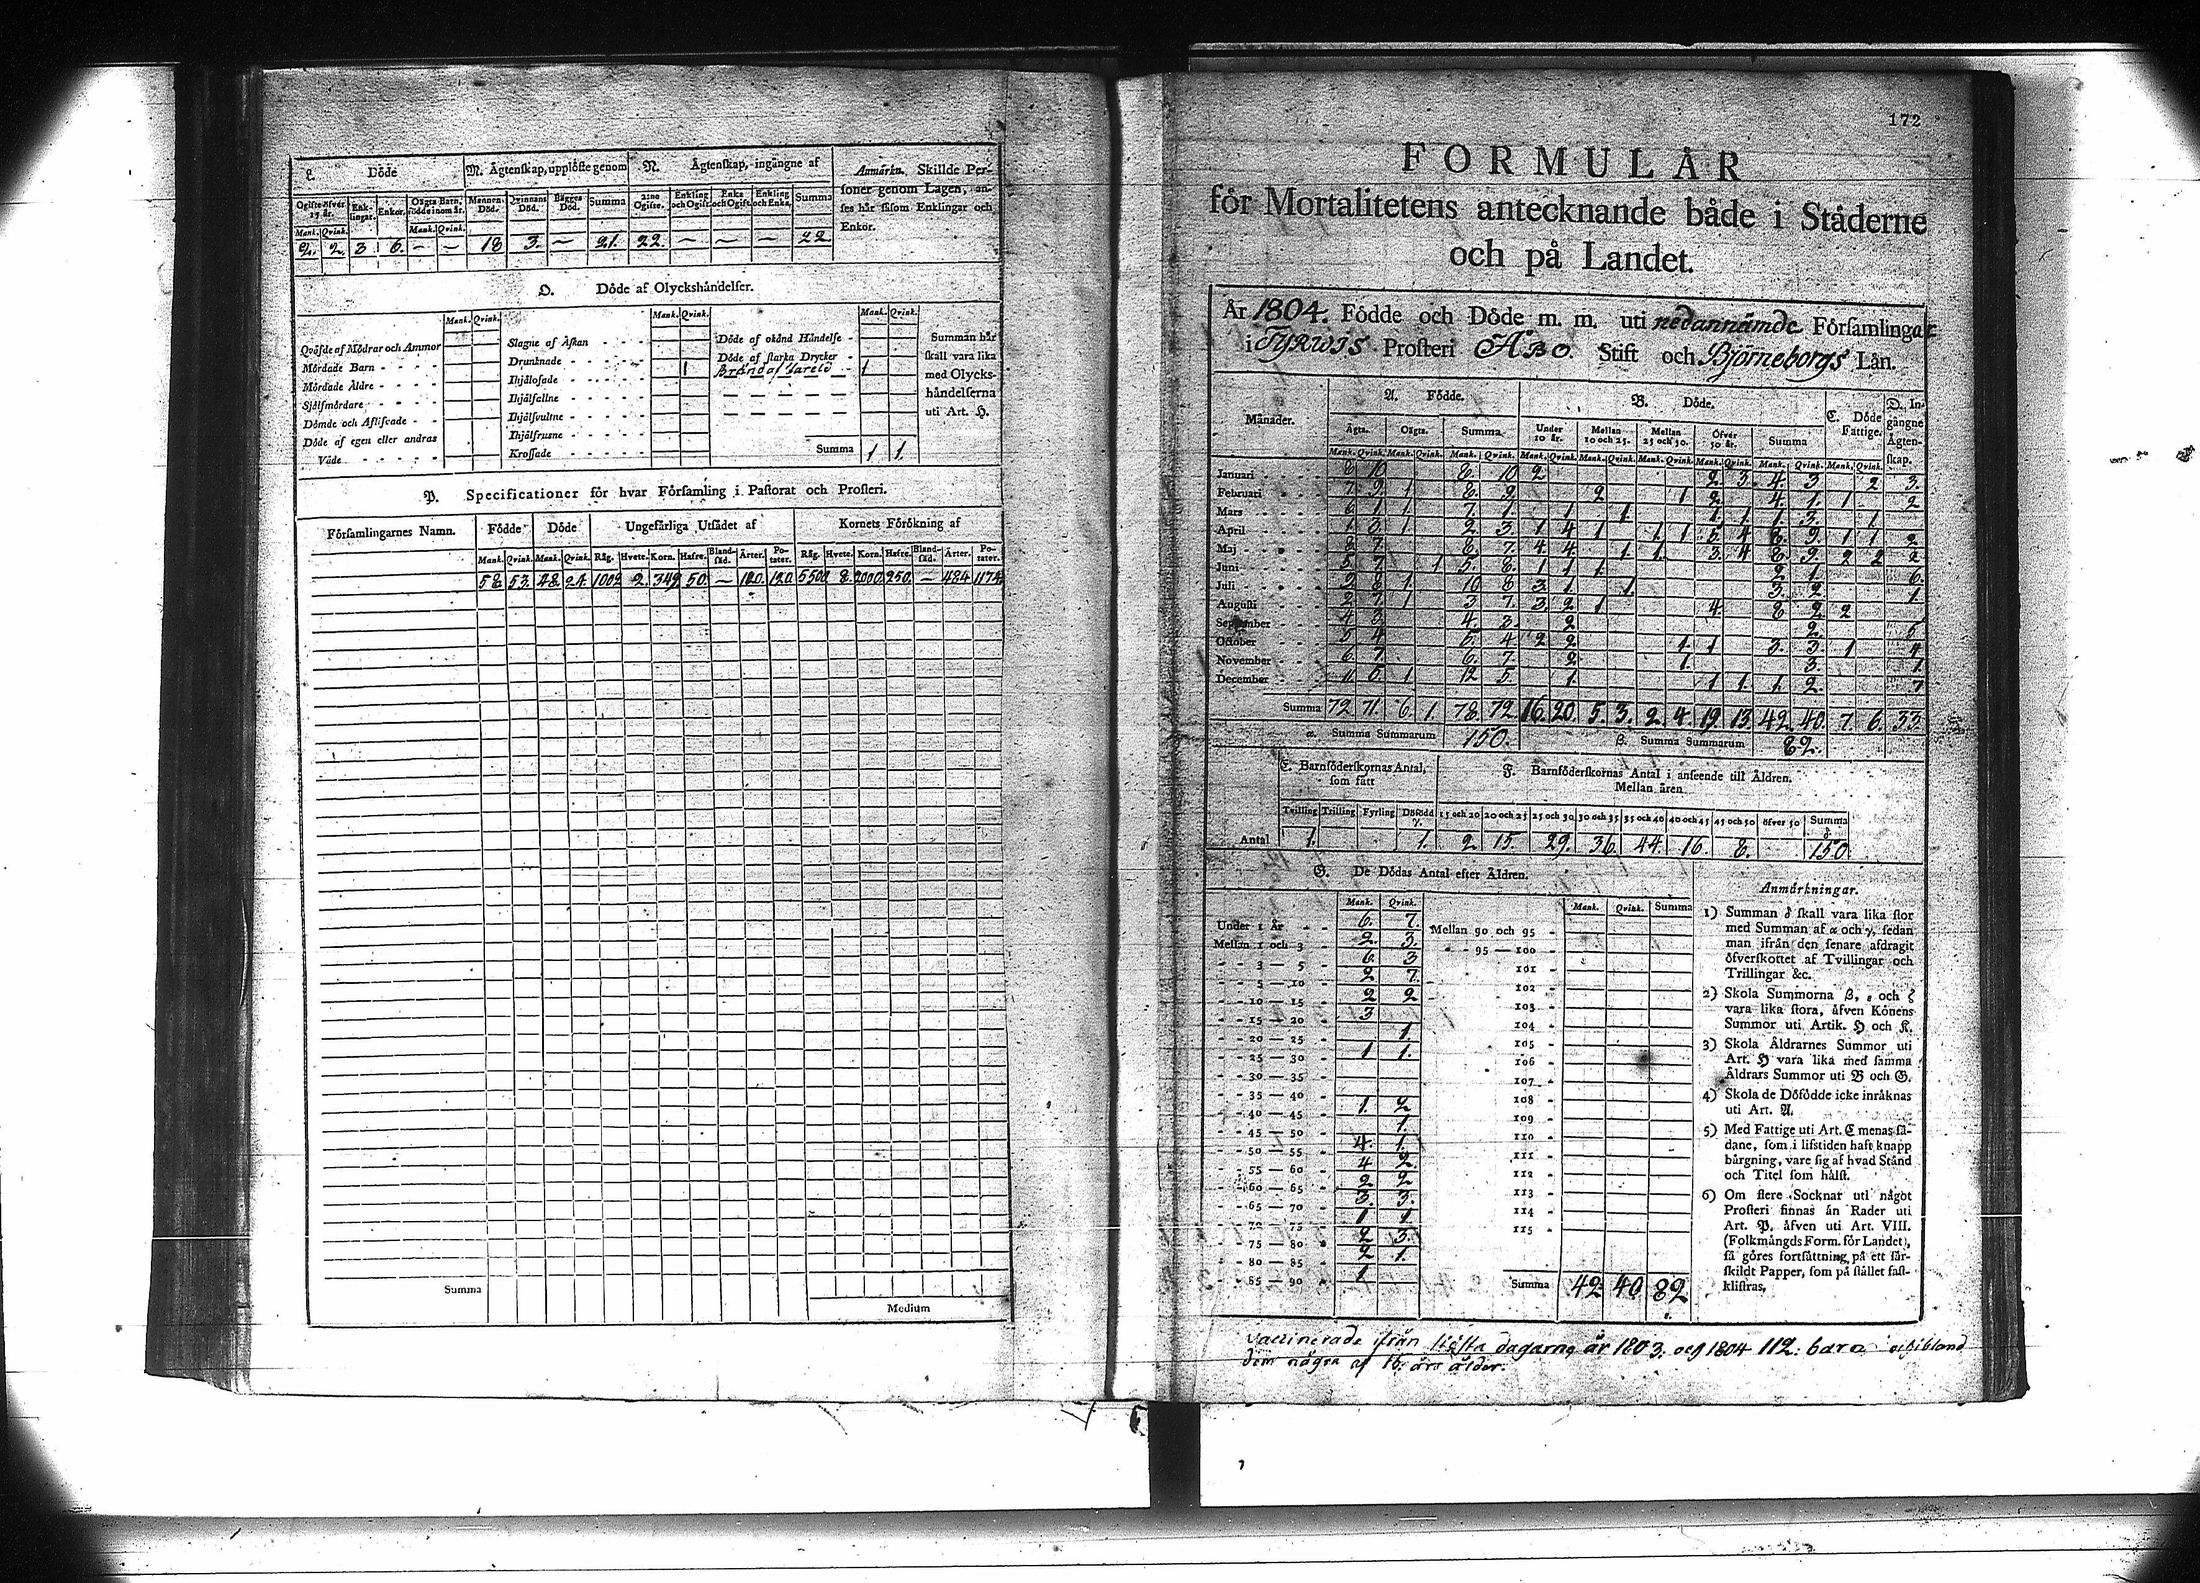 L. Döde
M. Ägtenskap, upplöste genom
N. Ägtenskap, ingångne af
Anmärkn. Skillde Personer genom Lagen, anses här såsom Enklingar och Enkor.
Ogifte öfver 15 år. Enklingar. Enkor. Oägta Barn, födde inom år. Mannens Död. Qvinnans Död. Bägges Död. Summa 2:ne Ogifte. Enkling och Ogift. Enka och Ogift. Enkling och Enka. Summa
Mank. Qvink. Mank. Qvink.
2. 2. 3 6. — — 18 3. — 21. 22. — — — 22
O. Döde af Olyckshändelser.
Mank. Qvink. Mank. Qvink. Mank. Qvink.
Qväfde af Mödrar och Ammor
Mördade Barn - - - -
Mördade Äldre - - - -
Själfmördare - - - -
Dömde och Aflifvade - -
Döde af egen eller andras
Våde - - - - -
Slagne af Åskan - - - -
Drunknade - - - - - 1
Ihjälosade - - - - -
Ihjälfallne - - - - -
Ihjälsvultne - - - -
Ihjälfrusne - - - - -
Krossade - - - - -
Döde af okänd Händelse -
Döde af starka Drycker -
Bränd af 1
Summa 1 1.
Summan här skall vara lika med Olyckshändelserna uti Art. H.
P. Specificationer för hvar Församling i Pastorat och Prosteri.
Församlingarnes Namn. Födde Döde Ungefärliga Utsädet af Kornets Förökning af
Mank. Qvink. Mank. Qvink. Råg. Hvete. Korn. Hafre. Blandsäd. Ärter. Potater. Råg. Hvete. Korn. Hafre. Blandsäd. Ärter. Potater.
58. 53. 48. 24. 1002 2. 349. 50. — 120. 120. 5500 8. 2000. 250. — 484 1174
Summa
Medium
172
FORMULÄR
för Mortalitetens antecknande både i Städerne
och på Landet.
År 1804. Födde och Döde m. m. uti nedannämde Församlingar
i TYRWIS Prosteri ÅBO. Stift och Björneborgs Län.
Månader.
A. Födde.
B. Döde.
C. Döde Fattige.
D. Ingångne Ägtenskap.
Ägta. Oägta. Summa Under 10 år. Mellan 10 och 25. Mellan 25 och 50. Öfver 50 år. Summa
Mank. Qvink. Mank. Qvink. Mank. Qvink. Mank. Qvink. Mank. Qvink. Mank. Qvink. Mank. Qvink. Mank. Qvink. Mank. Qvink.
Januari - - - 8 10 8. 10 2 2 3. 4. 3 2 3.
Februari - - - 7 9. 1 8. 9. 2 1 2. 4. 1. 1 2
Mars - - - 6 1 1 7. 1. 1 1. 1. 1. 1. 3. 1
April - - - 1 3 1 2 3. 1 4 1 1 1 5 4 8. 9. 1 1 2
Maj - - - 8 7 8. 7 4 4 1 1. 3. 4 8. 9. 2 2 2
Juni - - - 5 7 1 5. 8. 1 1 1. 2 1. 6.
Juli - - - 2 8 1. 10 8 3 1. 1. 3. 2 1.
Augusti - - - 2 7. 1 3 7. 3 2 1 4. 8 2 2
September - - 4 3. 4. 3. 2 2. 5
Oktober - - 5 4 5 4 2 2 1. 1 3. 3. 1 4
November - - 6 7 6. 7 2. 1. 3. 1.
December - - 11 5. 1 12 5. 1. 1 1. 1. 2. 7
Summa 72 71 6. 1. 78. 72. 16. 20. 5. 3. 2. 4. 19. 13. 42. 40. 7. 6. 33
α. Summa Summarum 150. β. Summa Summarum 82.
E. Barnföderskornas Antal, som fått
F. Barnföderskornas Antal i anseende till Åldren.
Mellan åren
Tvilling Trilling Fyrling Dödfödd γ. 15 och 20 20 och 25 25 och 30 30 och 35 35 och 40 40 och 45 45 och 50 öfver 50 Summa δ
Antal 1. 1. 2 15. 29. 36. 44. 16. 8. 150.
G. De Dödas Antal efter Åldren.
Mank. Qvink.
Under 1 År - - 6. 7.
Mellan 1 och 3 - 2. 3.
- - 3 — 5 - 6 3
- - 5 — 10 - 2 7
- - 10 — 15 - 2 2
- - 15 — 20 - 3
- - 20 — 25 - 1.
- - 25 — 30 - 1 1.
- - 30 — 35 -
- - 35 — 40 - 1. 2
- - 40 — 45 - 1.
- - 45 — 50 - 4. 1.
- - 50 — 55 - 4 2.
- - 55 — 60 - 2 2
- - 60 — 65 - 3 3.
- - 65 — 70 - 1 1
- - 70 — 75 - 2 3.
- - 75 — 80 - 2 1.
- - 80 — 85 - 1
- - 85 — 90 -
Mank. Qvink. Summa
Mellan 90 och 95 -
- - 95 — 100 -
101 -
102 -
103 -
104 -
105 -
106 -
107 -
108 -
109 -
110 -
111 -
112 -
113 -
114 -
115 -
Summa 42 40 82
Anmärkningar.
1) Summan δ skall vara lika stor
med Summan af α och γ, sedan
man ifrån den senare afdragit
öfverskottet af Tvillingar och
Trillingar &c.
2) Skola Summorna β, ε och ζ
vara lika stora, äfven Könens
Summor uti Artik. H och K.
3) Skola Åldrarnes Summor uti
Art. H vara lika med samma
Åldrars Summor uti B och G.
4) Skola de Dödfödde icke inräknas
uti Art. A.
5) Med Fattige uti Art. C menas sådane,
som i lifstiden haft knapp
bärgning, vare sig af hvad Stånd
och Titel som hälst.
6) Om flere Socknar uti något
Prosteri finnas än Rader uti
Art. P, äfven uti Art. VIII.
(Folkmängds Form. för Landet),
så göres fortsättning på ett särskildt
Papper, som på stället fastklistras.
vaccinerade ifrån sista dagarna år 1803. och 1804 112: barn
dem några af 16. års ålder.